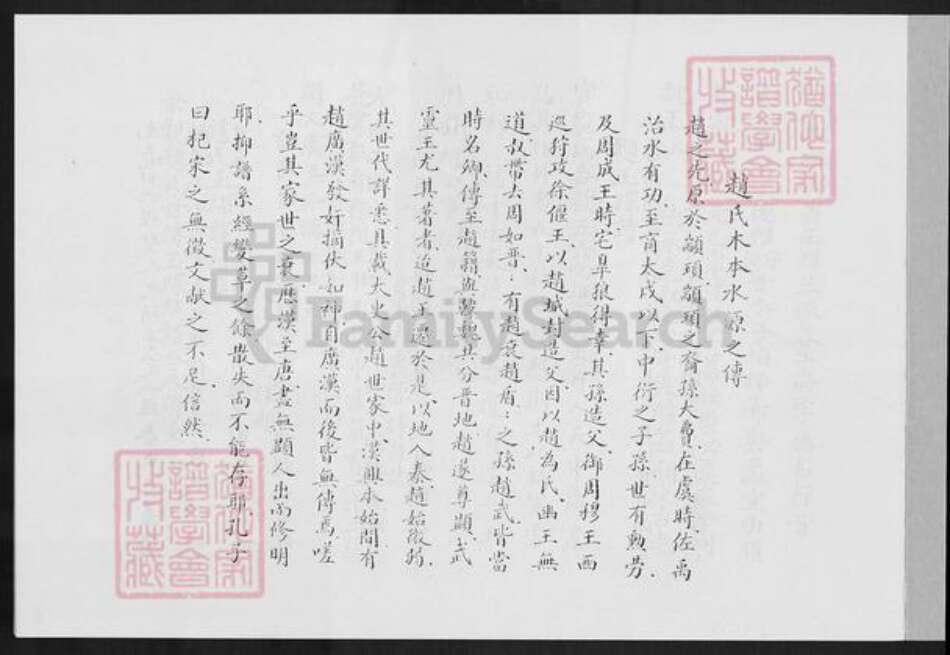 趙氏木本水源之傳
趙之先原於顓頊顓頊之裔孫大費.在虞時佐禹
治水有功.至商太戊以下中衍之子孫.世有勳勞.
及周成王時.宅皋狼得幸.其孫造父.御周穆王西
巡狩攻徐偃王.以趙城封造父.因以趙為氏.幽王無
道叔帶去周如晉.有趙衰趙盾.:之孫趙武.皆當
時名卿.傳至趙籍與韓魏共分晉地.趙遂尊顯.武
靈王尤其著者.迨趙王遷於是以地入秦.趙始微弱.
其世代詳悉具載太史公趙世家中.漢興本始間.有
趙廣漢發奸摘伏如神.自廣漢而後皆無傳焉.嗟
乎.豈其家世之衰.歷漢至唐.盡無顯人出而修明
耶.抑譜系經變革之餘.散失而不能存耶.孔子
曰杞宋之無徵文献之不足.信然.
猶他家譜學會收藏
猶他家譜學會收藏
FamilySearch